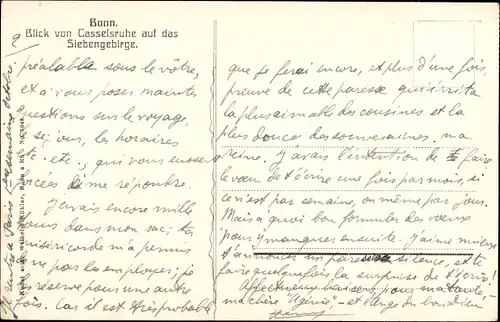 Bonn.
Blick von Casselsruhe auf das
Siebengebirge.
préalable sous le vôtre,
et à vous poser mainte
questions sur le voyage,
séjour, les horaires
etc., qui vous eusse
forcées à me répondre.
J'avais encore mille
tours dans mon sac; ta
miséricorde m'a permis
de ne pas les employer; je
les réserve pour une autre
fois. Car il est très probable
que je ferai encore, et plus d'une fois,
preuve de cette paresse qui irrita
la plus aimable des cousines et la
plus douce des souveraines, ma
reine. J'avais l'intention de faire
le vœu de t'écrire une fois par mois, si
ce n'est par semaine, ou même par jour.
Mais à quoi bon formuler des vœux
pour y manquer ensuite. J'aime mieux
t'annoncer un paresseux silence, et te
faire quelquefois la surprise de t'écrire!
Affectueux baisers pour ma tante,
ma chère "Ugénie", et l'ange du bon dieu
Je rentre à Paris